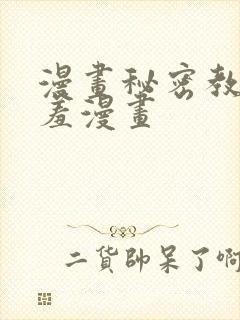 漫畫秘密教
羞漫畫
二貨帥呆了啊